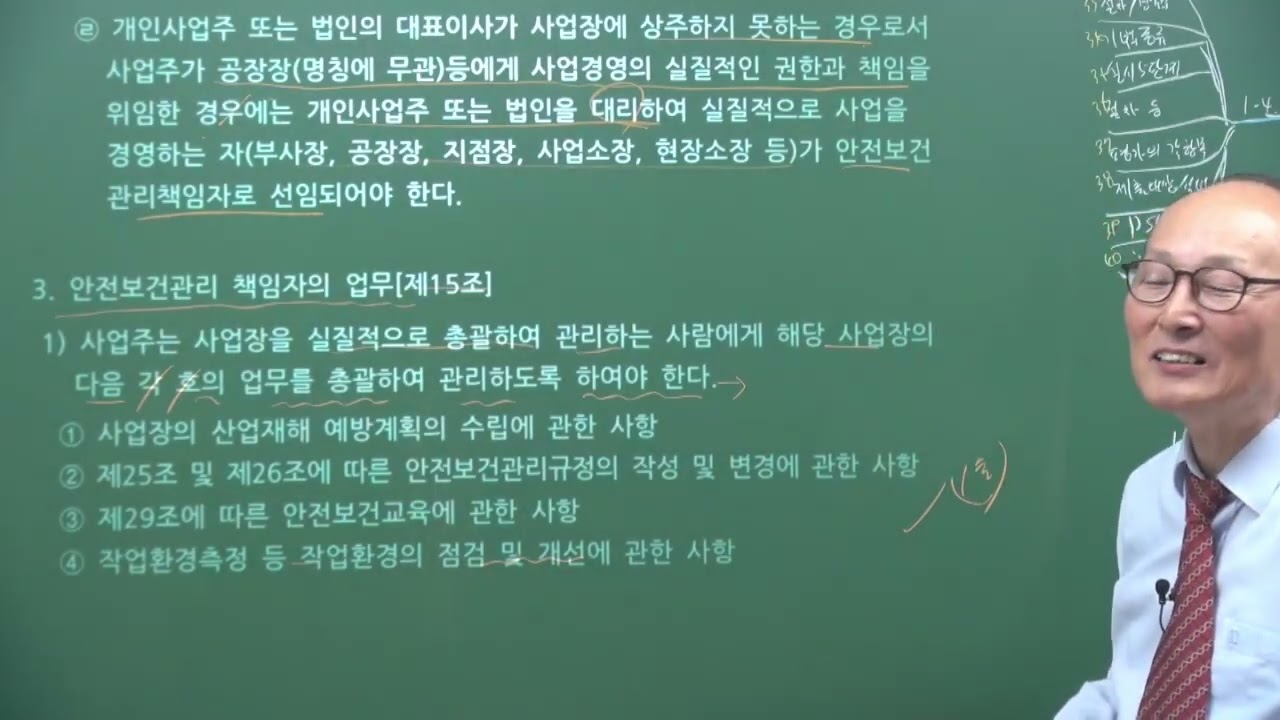 ② 개인사업주 또는 법인의 대표이사가 사업장에 상주하지 못하는 경우로서
사업주가 공장장(명칭에 무관)등에게 사업경영의 실질적인 권한과 책임을
위임한 경우에는 개인사업주 또는 법인을 대리하여 실질적으로 사업을
경영하는 자(부사장, 공장장, 지점장, 사업소장, 현장소장 등)가 안전보건
관리책임자로 선임되어야 한다.
3. 안전보건관리 책임자의 업무[제15조]
1) 사업주는 사업장을 실질적으로 총괄하여 관리하는 사람에게 해당 사업장의
다음 각 호의 업무를 총괄하여 관리하도록 하여야 한다.
① 사업장의 산업재해 예방계획의 수립에 관한 사항
② 제25조 및 제26조에 따른 안전보건관리규정의 작성 및 변경에 관한 사항
③ 제29조에 따른 안전보건교육에 관한 사항
④ 작업환경측정 등 작업환경의 점검 및 개선에 관한 사항
1-4